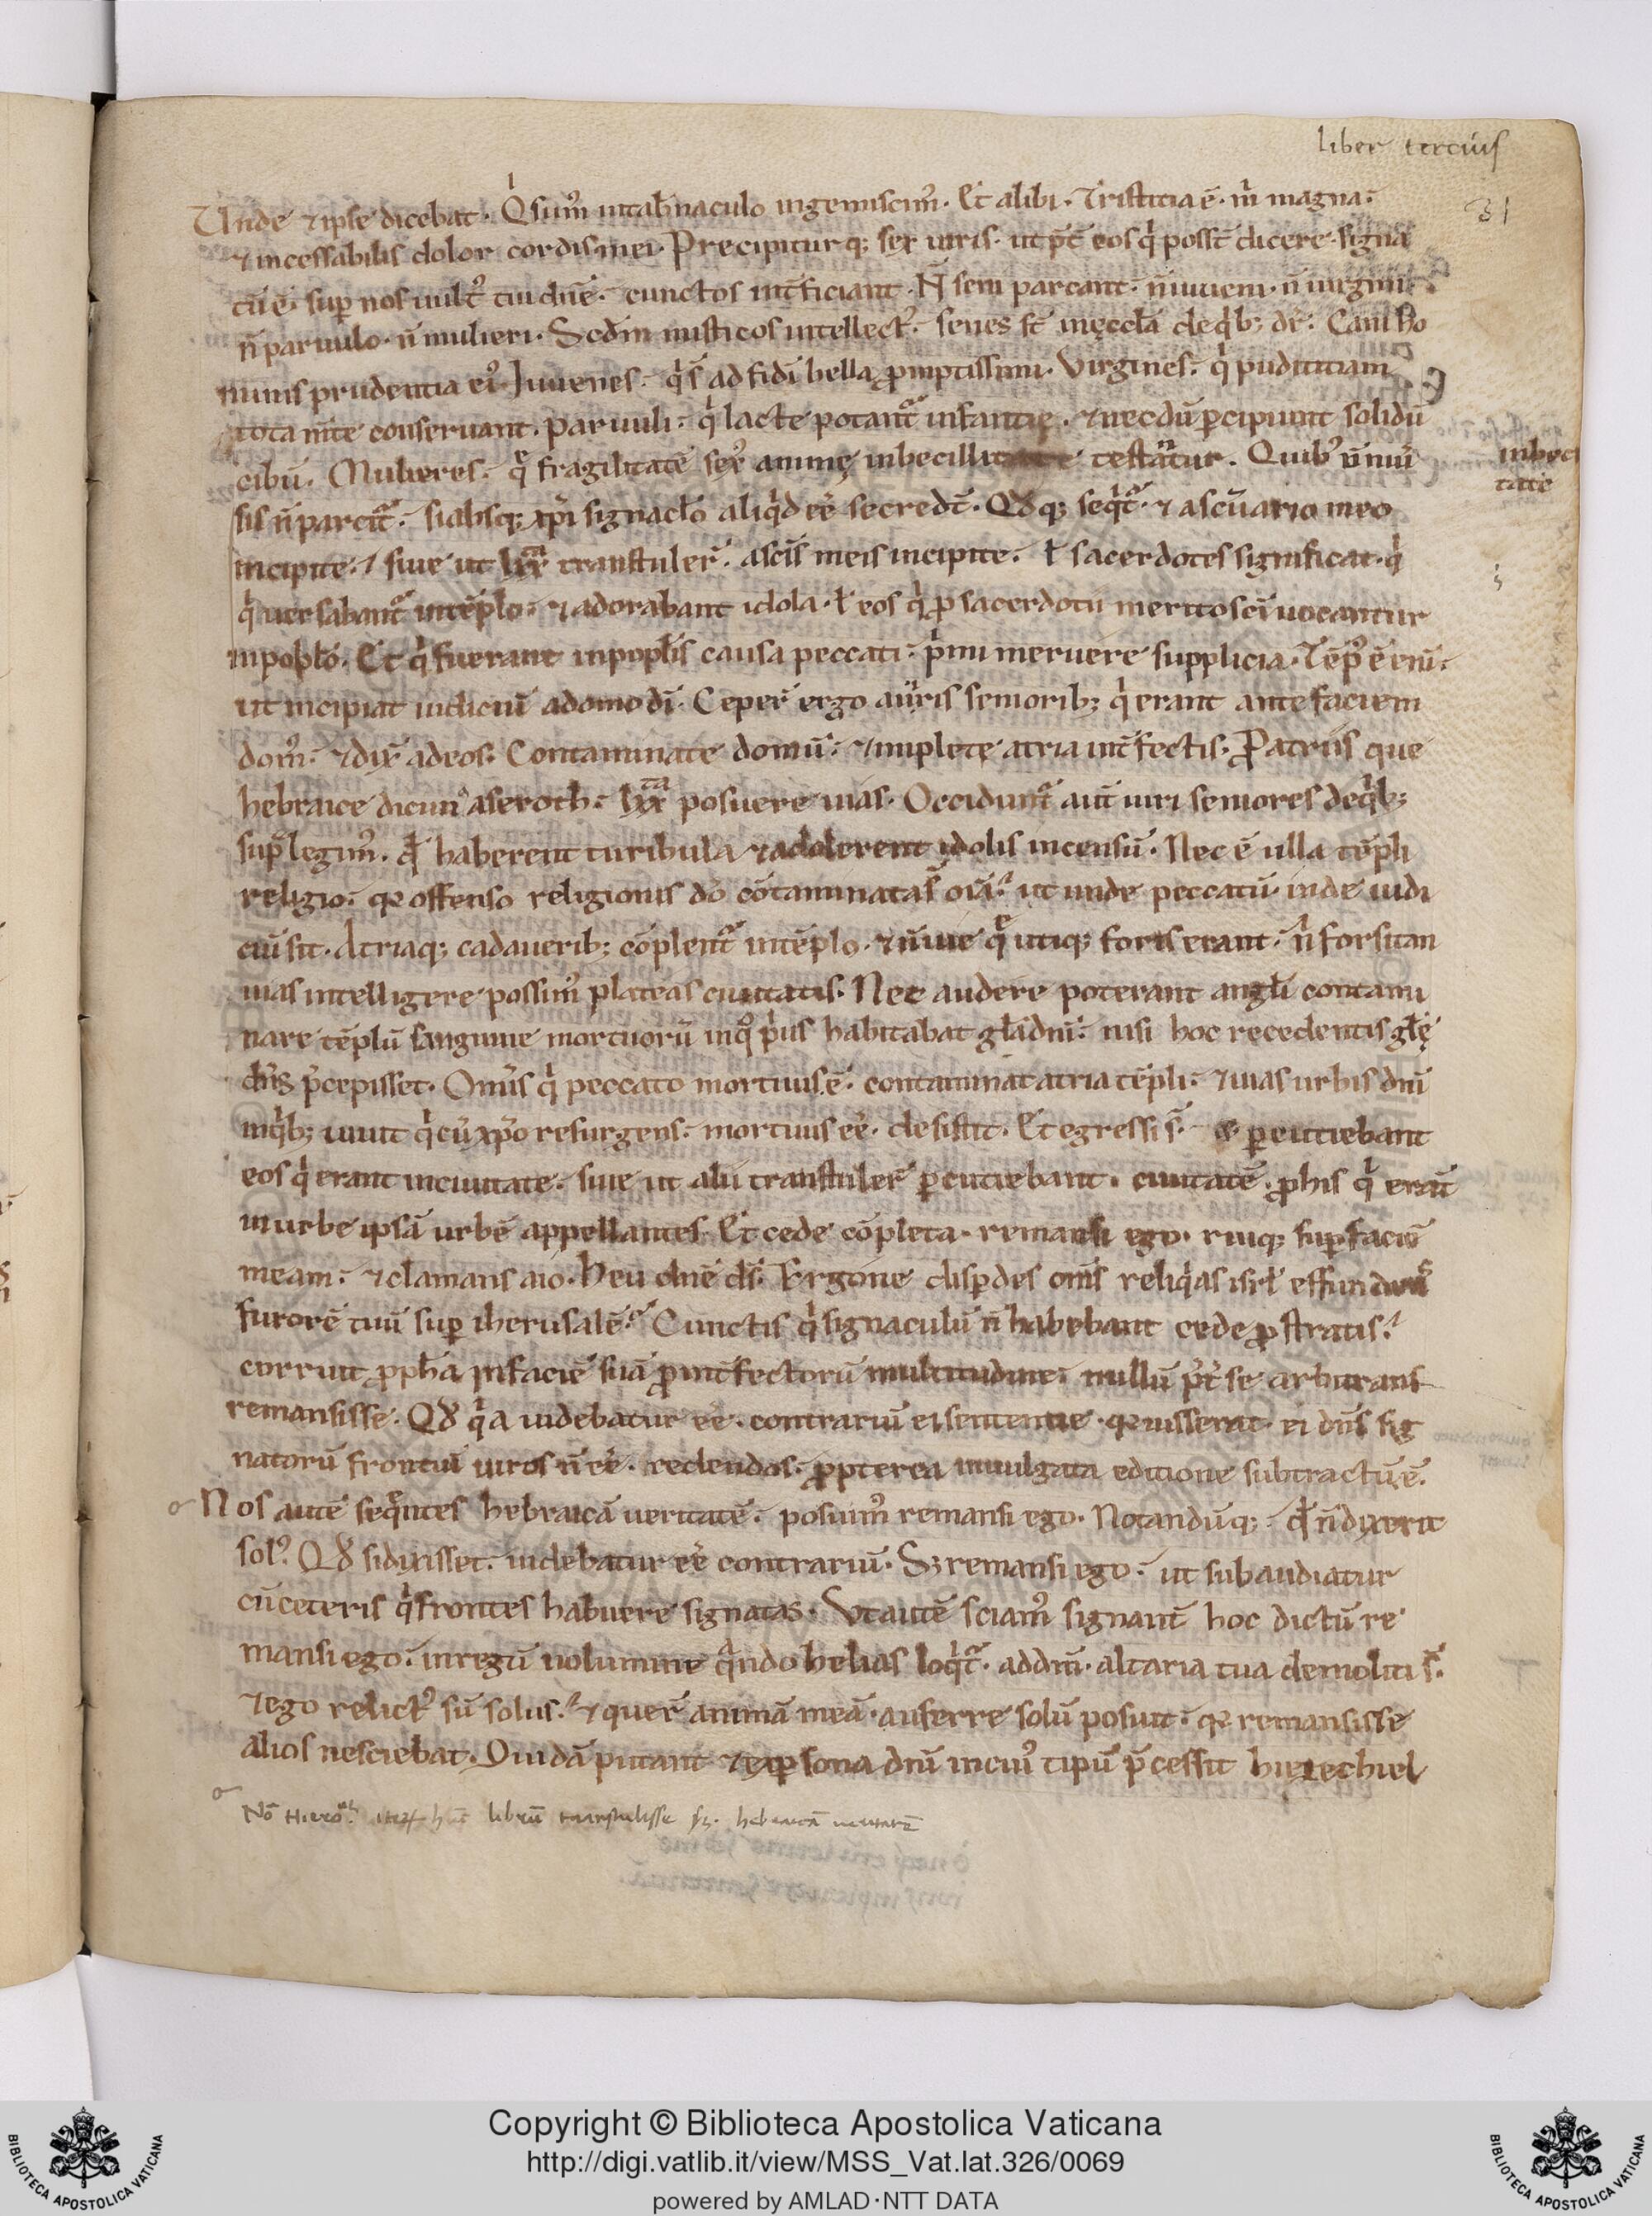 liber tercius
31
Unde ⁊ ipse dicebat. Qͥ sumꝰ intab̄naculo ingemiscimꝰ. Et alibi. Tristitia ē. m̄ magna.
⁊ incessabilis dolor cordis mei. Precipitur q; sex uiris. ut p̄t̄ eos qͥ poss̄t dicere. signa
tū ē. suꝑ nos uultꝰ tui dn̄e. cunctos int̄ficiant. N̄ seni parcant. n̄ iuueni. n̄ uirgini.
n̄ paruulo. n̄ mulieri. Scd̄m misticos intellectꝰ. senes st̄ in ęccła de qͥb; dr̄. Cani ho
minis prudentia eiꝰ. Iuuenes. qͥ s̄ ad fidī bella ꝓmptissimi. Virgines. qͥ pudicitiam
tota m̄te conseruant. paruuli. qͥ lacte potant᷑ infantię. ⁊ necdū ꝑcipiunt solidū
cibū. Mulieres. q̄ fragilitatē sexꝰ animę inbecillitate testantur. Quibꝰ uniuer
inbeci
tate
sis n̄ parcit᷑. si absq; xp̄i signacło aliqͥd eē̄ se credt̄. Qd̄ q; seqͥt᷑. ⁊ a scūario meo
incipite. siue ut lxx transtuler̄. a sc̄is meis incipite. ł sacerdotes significat. qͥ
qͥ uersabant᷑ in tēplo. ⁊ adorabant idola. ł eos qͥ ꝓ sacerdotii merito sc̄i uocantur
in popło. Et qͥ fuerant in popłis causa peccati. pͥmi meruere supplicia. Tēpꝰ ē enī.
ut incipiat iudiciū a domo dī. Ceper̄ ergo a uiris seniorib; qͥ erant ante faciem
domꝰ. ⁊ dix̄ ad eos. Contaminate domū. ⁊ implete atria int̄fectis. Pro atriis que
hebraice dicunt᷑ aseroth. lxx posuere uias. Occidunt᷑ aut̄ uiri seniores de qͥb;
supͣ legimꝰ. qd̄ haberent turibula ⁊ adolerent ydolis incensū. Nec ē ulla tēpli
religio. q̄ offenso religionis dō cōtaminata s̄ oīa. ut unde peccatū inde iudi
ciū sit. Atriaq; cadauerib; cōplent᷑ in tēplo. ⁊ n̄ uie q̄ utiq; foris erant. n̄ forsitan
uias intelligere possimꝰ plateas ciuitatis. Nec audere poterant angłi contami
nare tēplū sanguine mortuorū in qͦ pͥus habitabat gła dn̄i. nisi hoc recedentis głę
dn̄s p̄cepisset. Om̄s qͥ peccato mortuus ē. contaminat atria tēpli. ⁊ uias urbis dn̄i
in qͥb; uiuit qͥ cū xp̄o resurgens. mortuus eē̄. desistit. Et egressi s̄. ⁊ ꝑcutiebant
eos qͥ erant in ciuitate. siue ut alii transtuler̄ ꝑcutiebant. ciuitatē. ꝓ his qͥ erant
in urbe ipsā urbē appellantes. Et cede cōpleta. remansi ego. ruiq; suꝑ faciē
meam. ⁊ clamans aio. Heu dn̄e ds̄. Ergone disꝑdes om̄s reliqͥas isrł effundens
furorē tuū suꝑ iherusalē. Cunctis qͥ signaculū n̄ habebant cede ꝓstratis.
corruit ꝓpħa in faciē suā ꝓ int̄fectorū multitudine. nullū p̄t̄ se arbitrans
remansisse. Qd̄ qͥa uidebatur eē̄. contrariū ei sententie. q̄ iusserat ei dn̄s sig
natorū frontiū uiros n̄ eē̄. cedendos. ꝓpterea in uulgata editione subtractū ē.
Nos autē sequentes hebraicā ueritatē. posuimꝰ remansi ego. Notandū q;. qd̄ n̄ dixerit
solꝰ. Qd̄ si dixisset. uidebatur eē̄ contrariū. S; remansi ego. ut subaudiatur
cū ceteris qͥ frontes habuere signatas. Vt autē sciamꝰ signant̄ hoc dictū re
mansi ego. in regū uolumine quando helias loqͥt᷑. ad dn̄m. altaria tua demoliti s̄.
⁊ ego relictꝰ sū solus. ⁊ quer̄t animā meā. auferre solū posuit. q̄ remansisse
alios nesciebat. Quidā putant ⁊ ex ꝑsona dn̄i in cuiꝰ tipū p̄cessit hiezechiel
Nō Hiero. libꝝ transtulisse hebraicā ueritatē